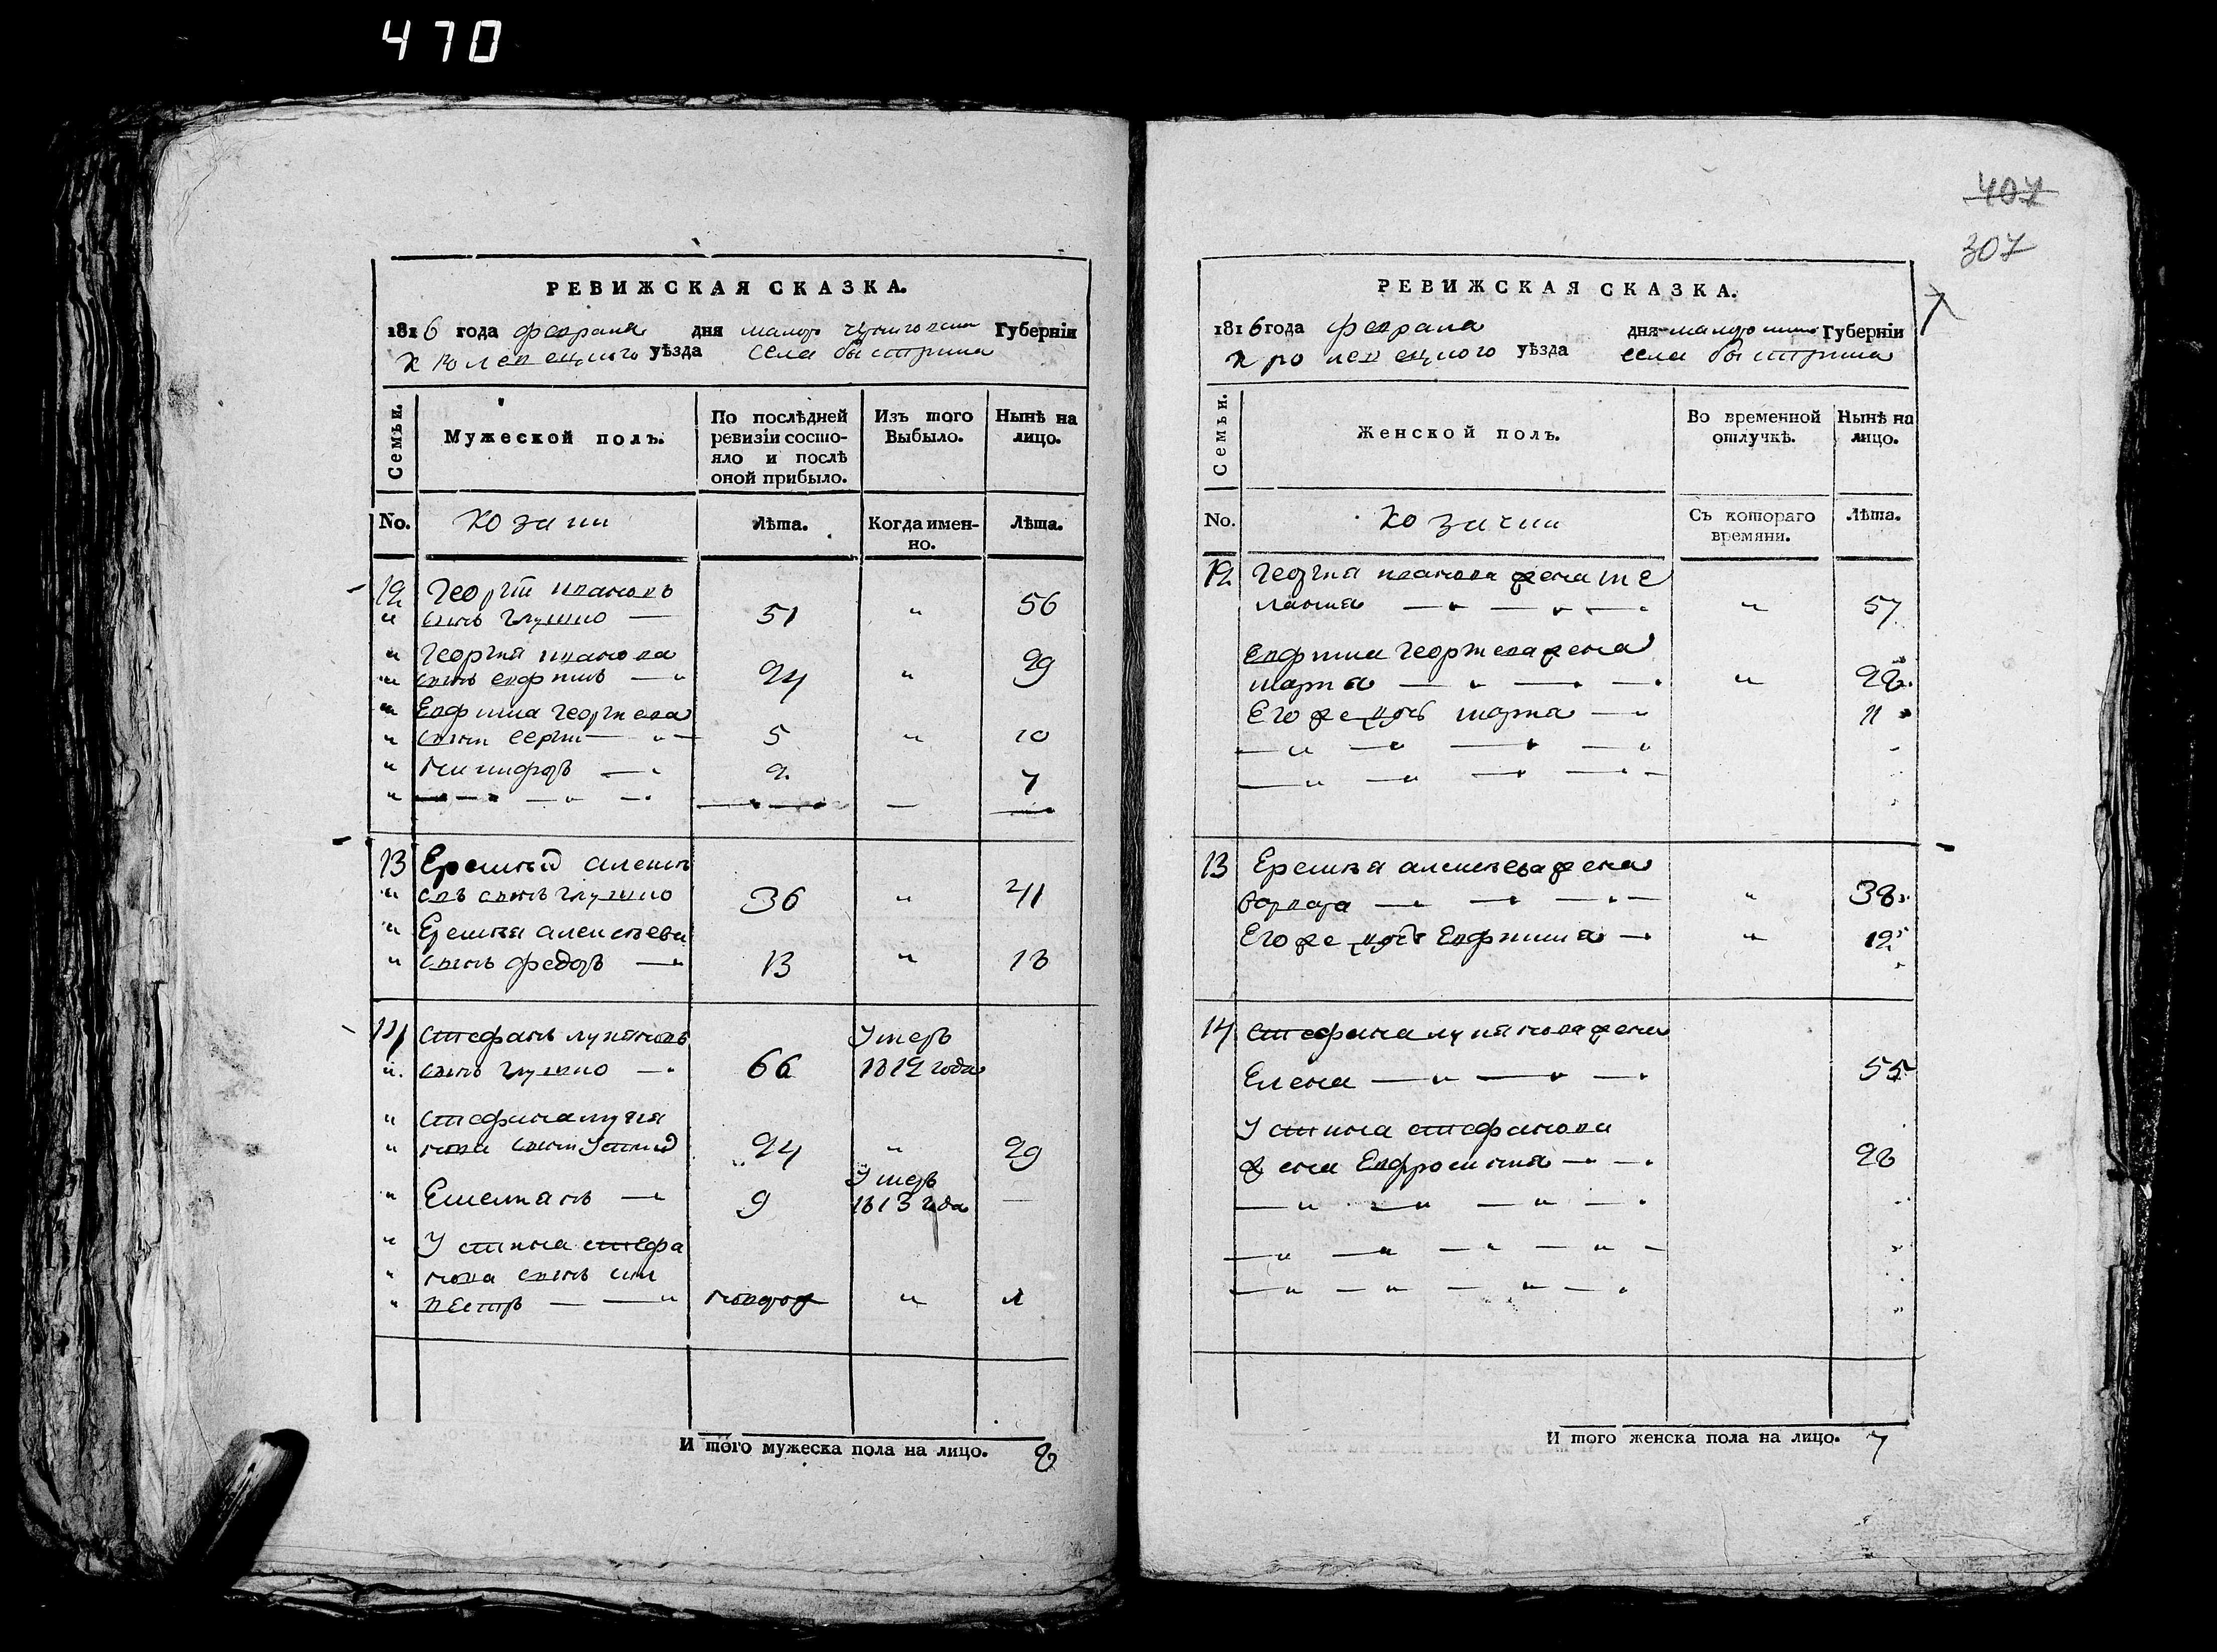 470
407
307
РЕВИЖСКАЯ СКАЗКА.
1816 года февраля дня малор черниговской Губерніи
кролевецкого уѣзда села быстрика
Семьи.
Мужеской полъ.
По послѣдней ревизіи состо-
яло и послѣ
оной прибыло.
Изъ того
Выбыло.
Нынѣ на
лицо.
No. козаки Лѣта. Когда имен-
но. Лѣта.
12 Георгій ивановъ
" сынъ глушко — 51 " 56
" Георгия иванова
" сынъ евфимъ — " 24 " 29
" Евфима георгиева
" сыни сергий — " — 5 " 10
" никифоръ — " 2 7
" — " — " — "
13 Еремѣй алексѣ
" евъ сынъ глушко 36 " 41
" Еремѣя алексѣева
" сынъ федоръ — " 13 " 18
14 стефанъ лукяновъ Умеръ
" сынъ глушко — " 66 1812 года
" стефана лукя
" нова сыни Устинъ 24 " 29
" Емелянъ — " 9 Умеръ
1813 года —
" Устина стефа
" нова сынъ
" петръ — — " новорож "
И того мужеска пола на лицо. 8
РЕВИЖСКАЯ СКАЗКА.
1816 года февраля дня Губерніи
кролевецкого уѣзда села быстрика
Семьи.
Женской полъ.
Во временной
отлучкѣ.
Нынѣ на
лицо.
No. козачки Съ котораго
времяни. Лѣта.
12 Георгия иванова жена ме
лания — " — " — " " 57
Евфима георгиева жена
мария — " — " — " " 28
Его же дочь марья — " 11
— " — " — " — "
— " — " — " — " —
13 Еремѣя алексѣева жена
варвара — " — " — " — " 38
Его же дочь Евфимия — " " 12
14 стефана лукянова жена
Елена — " — " — " 55
Устина стефанова
жена Евфросиния — " — " 28
— " — " — " — " — "
— " — " — " — " —
— " — " — " — "
И того женска пола на лицо. 7